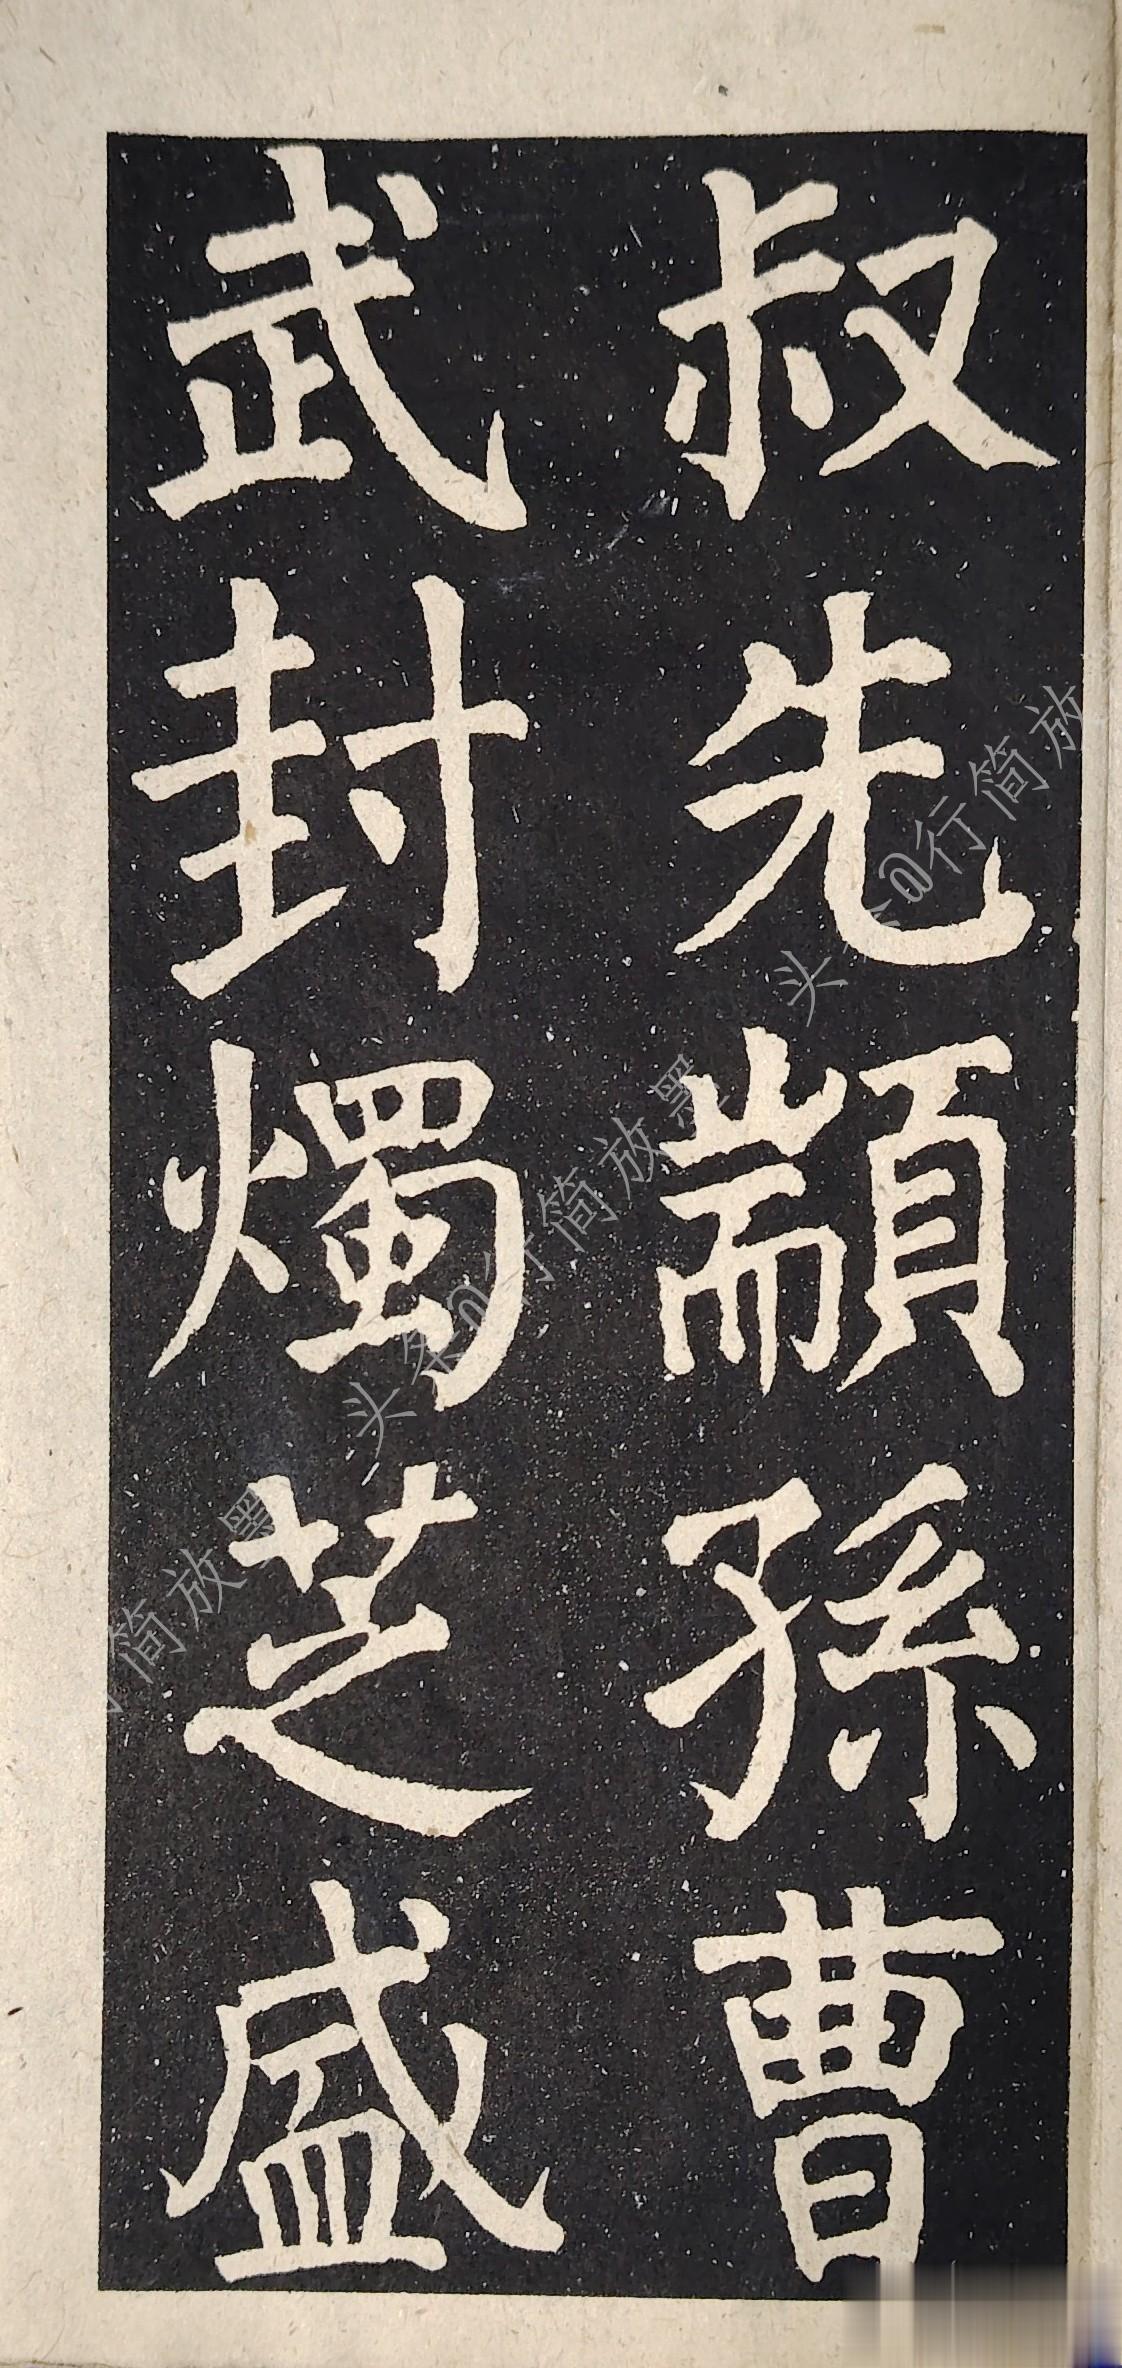 叔先顓孫曹
武封燭芝盛
头条@行简放
头条@行简放墨
简放墨